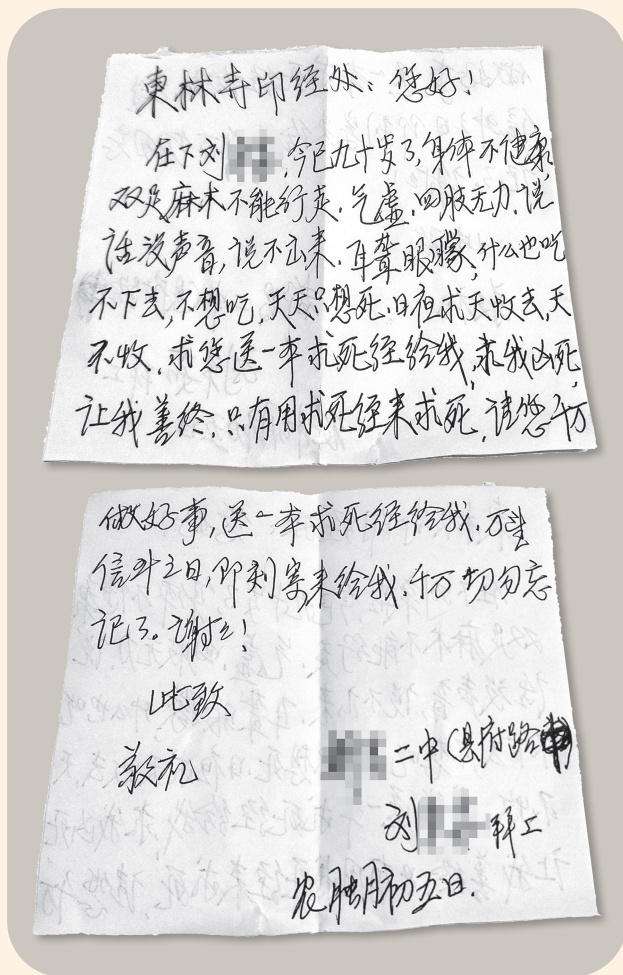 東林寺印经处：您好！
在下刘，今已九十岁了，身体不健康，
双足麻木不能行走，气虚，四肢无力，说
话没声音，说不出来，耳聋眼矇，什么也吃
不下去，不想吃，天天只想死，日夜求天收去，天
不收，求您送一本求死经给我，求我凶死，
让我善终，只有用求死经来求死，请您千万
做好事，送一本求死经给我，万
信之日，即刻寄来给我，千万切勿忘
记了。谢谢！
此致
敬礼
二中（县府路）
刘 拜上
农腊月初五日。